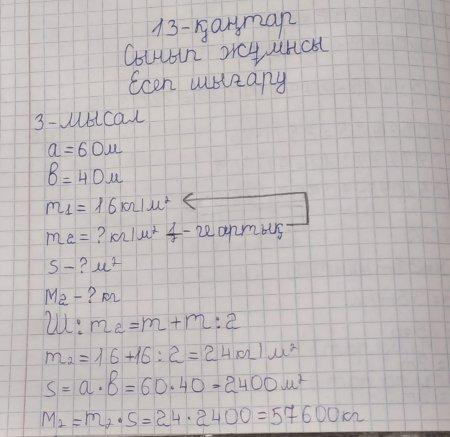 13-қаңтар
Сынып жұмысы
Есеп шығару
3-мысал
a=60м
в=40м
m1=16кг/м²
m2=?кг/м² -ге артық
S-?м²
M2-?кг
Ш: m2=m+m:2
m2=16+16:2=24кг/м²
S=a·в=60·40=2400м²
M2=m2·S=24·2400=57600кг